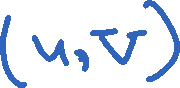 (u, v)